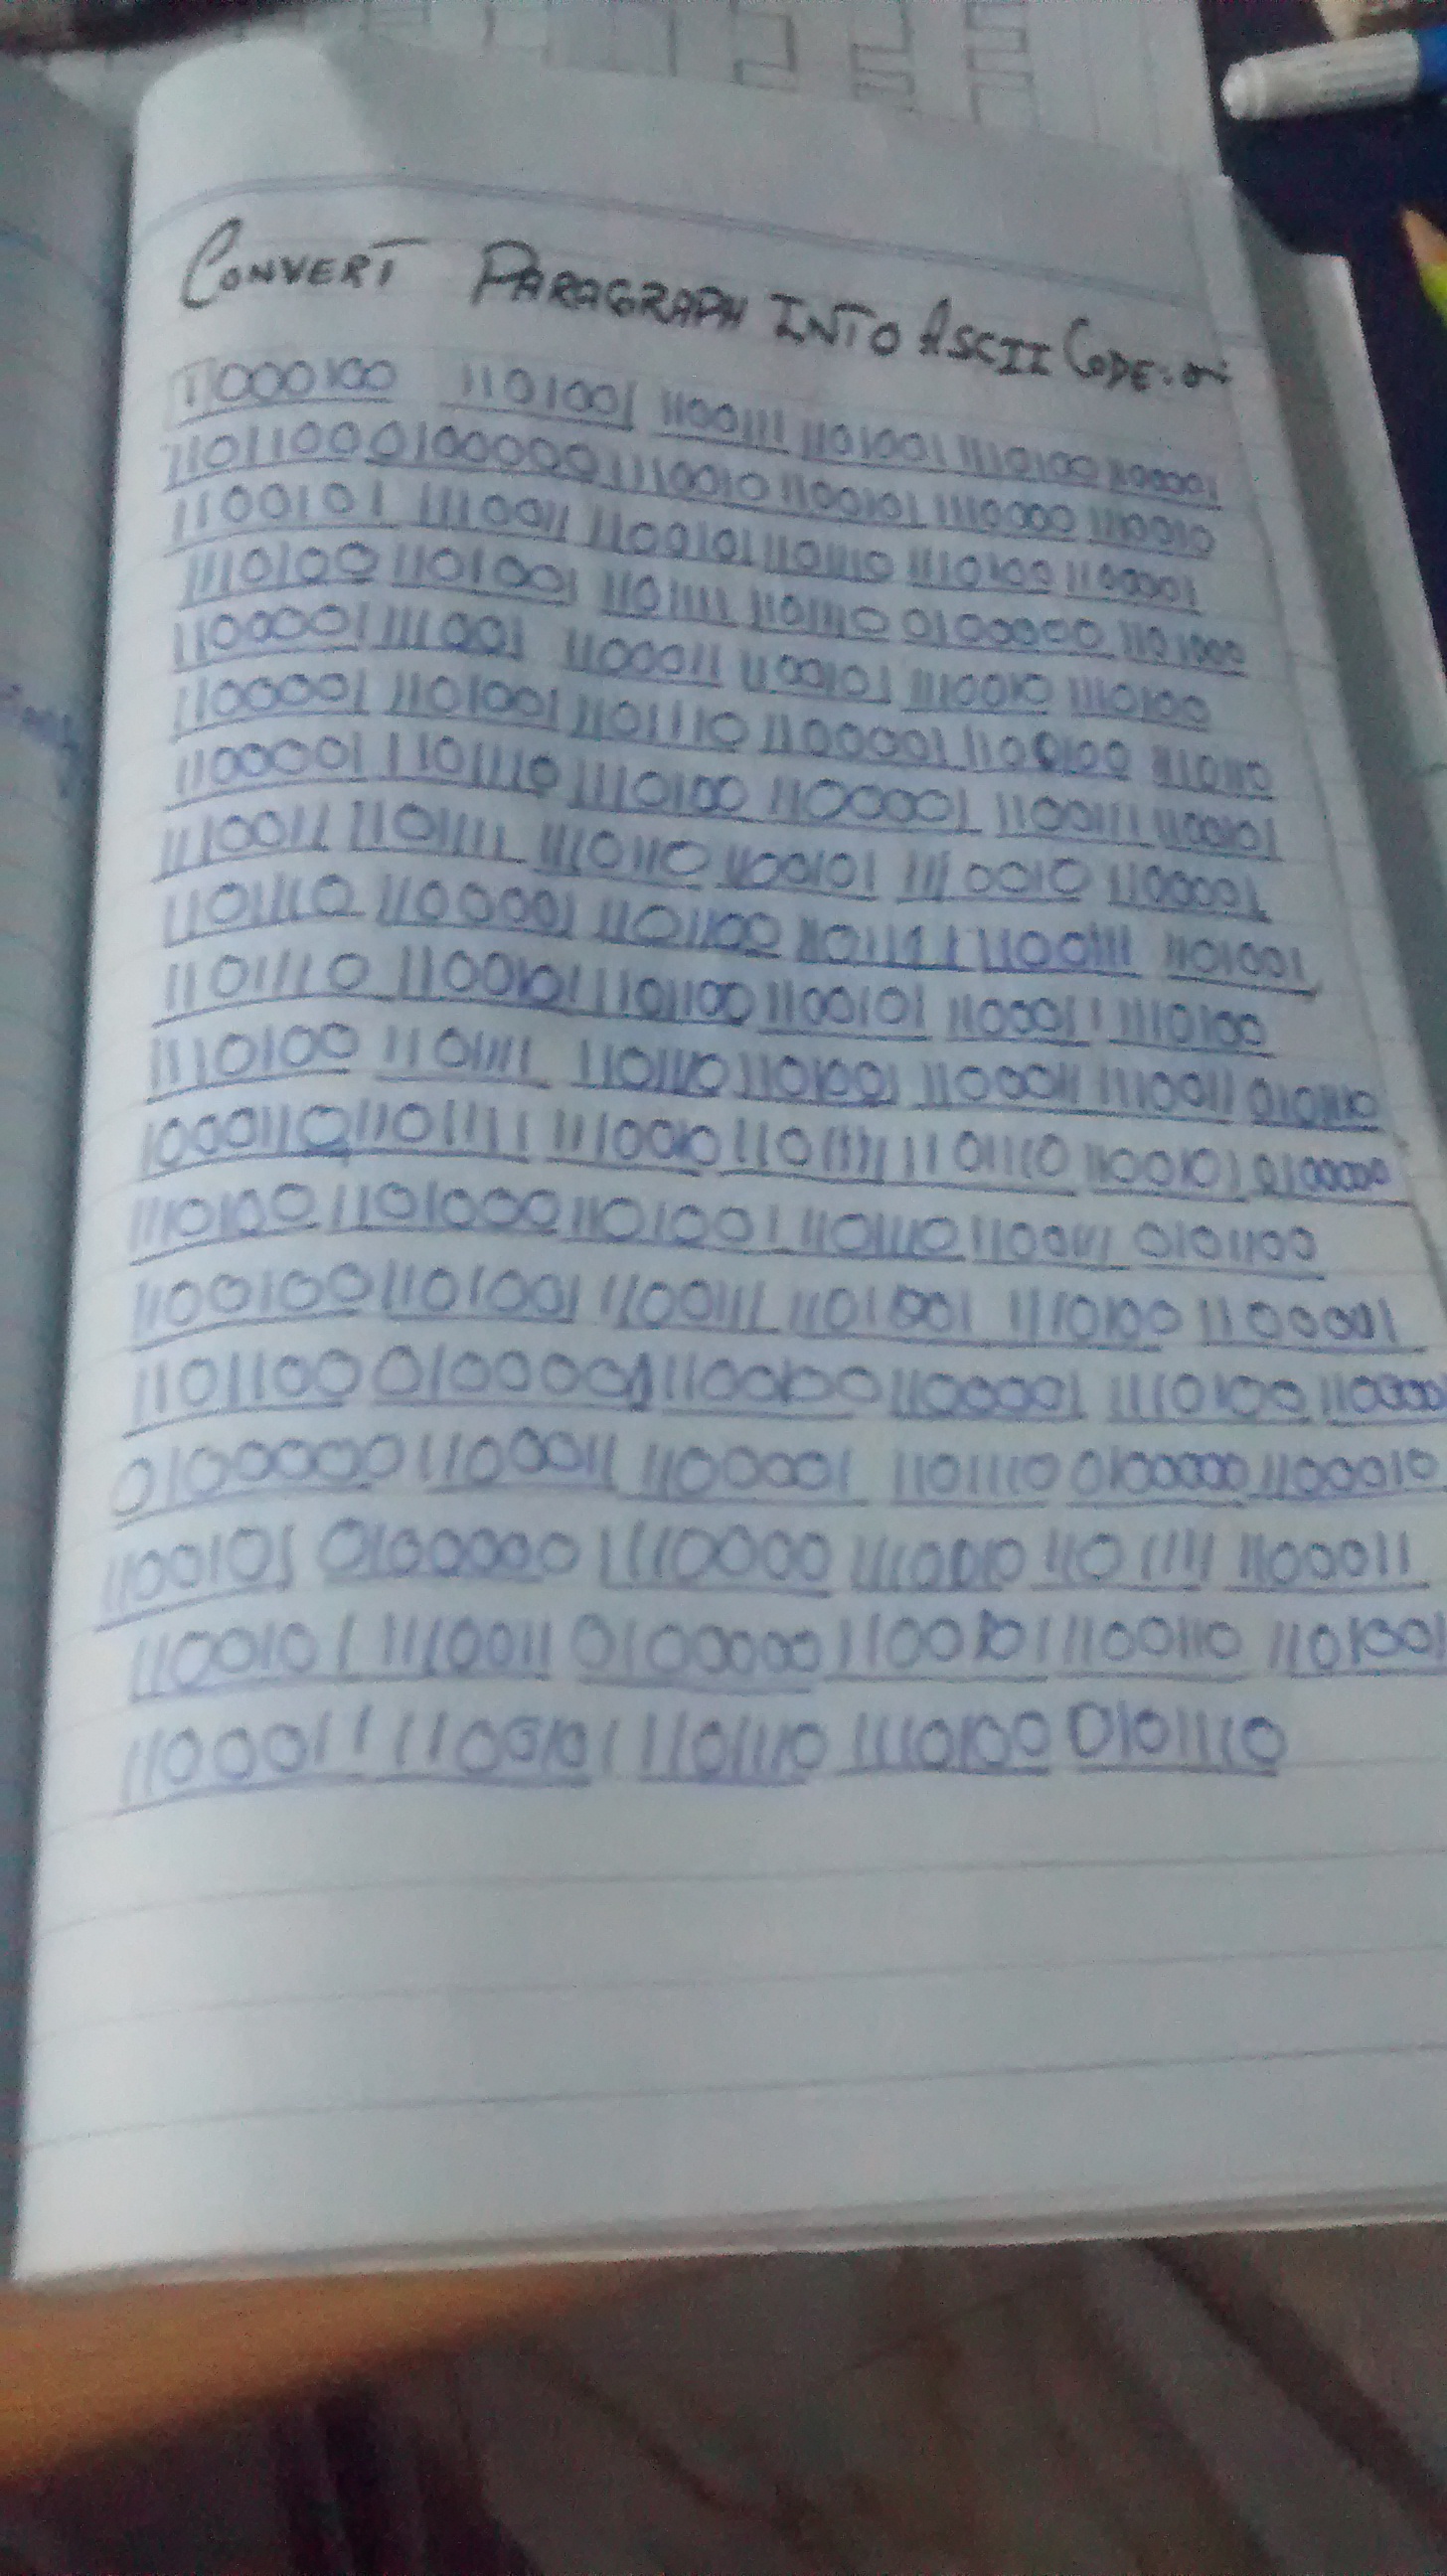 CONVERT PARAGRAPH INTO ASCII CODE:-
11000100 1101001 1100111 1101001 1110100 1100001
1101100 0100000 1110010 1100101 1110000 1110010
1100101 1110011 1100101 1101110 1110100 1100001
1110100 1101001 1101111 1101110 0100000 1101000
1100001 1111001 1100011 1100101 1110010 1110100
1100001 1101001 1101110 1100001 1100100 1110110
1100001 1101110 1110100 1100001 1100111 1100101
1110011 1101111 1110110 1100101 1110010 1100001
1101110 1100001 1101100 1101111 1100111 1101001
1101110 1100101 1101100 1100101 1100011 1110100
1110100 1101111 1101110 1101001 1100011 1110011 0101110
1000110 1101111 1110010 1101111 1101110 1100101 0100000
1110100 1101000 1101001 1101110 1100111 0101100
1100100 1101001 1100111 1101001 1110100 1100001
1101100 0100000 1100100 1100001 1110100 110000
0100000 1100011 1100001 1101110 0100000 1100010
1100101 0100000 1110000 1110010 1101111 1100011
1100101 1110011 0100000 1100101 1100110 1101001
1100011 1100101 1101110 1110100 0101110